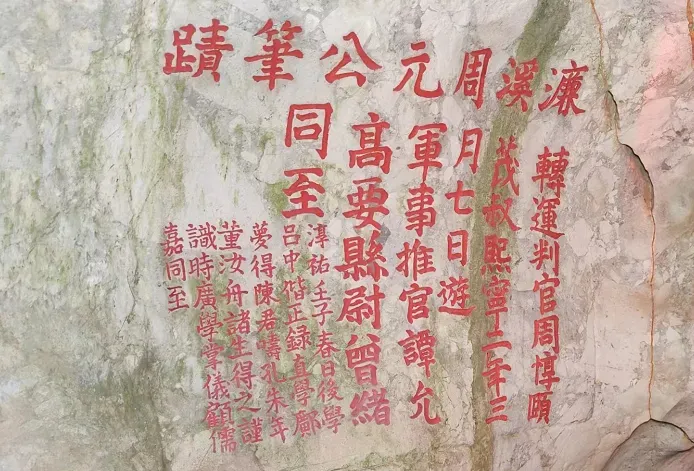 濂溪周元公筆蹟
轉運判官周惇頤
茂叔熙寧二年三
月七日遊
軍事推官譚允
高要縣尉曾緒
同至
淳祐壬子春日後學
呂中偕正錄直學鄺
夢得陳君嚋孔朱年
董汝舟諸生得之謹
識時廣學掌儀顧儒
嘉同至